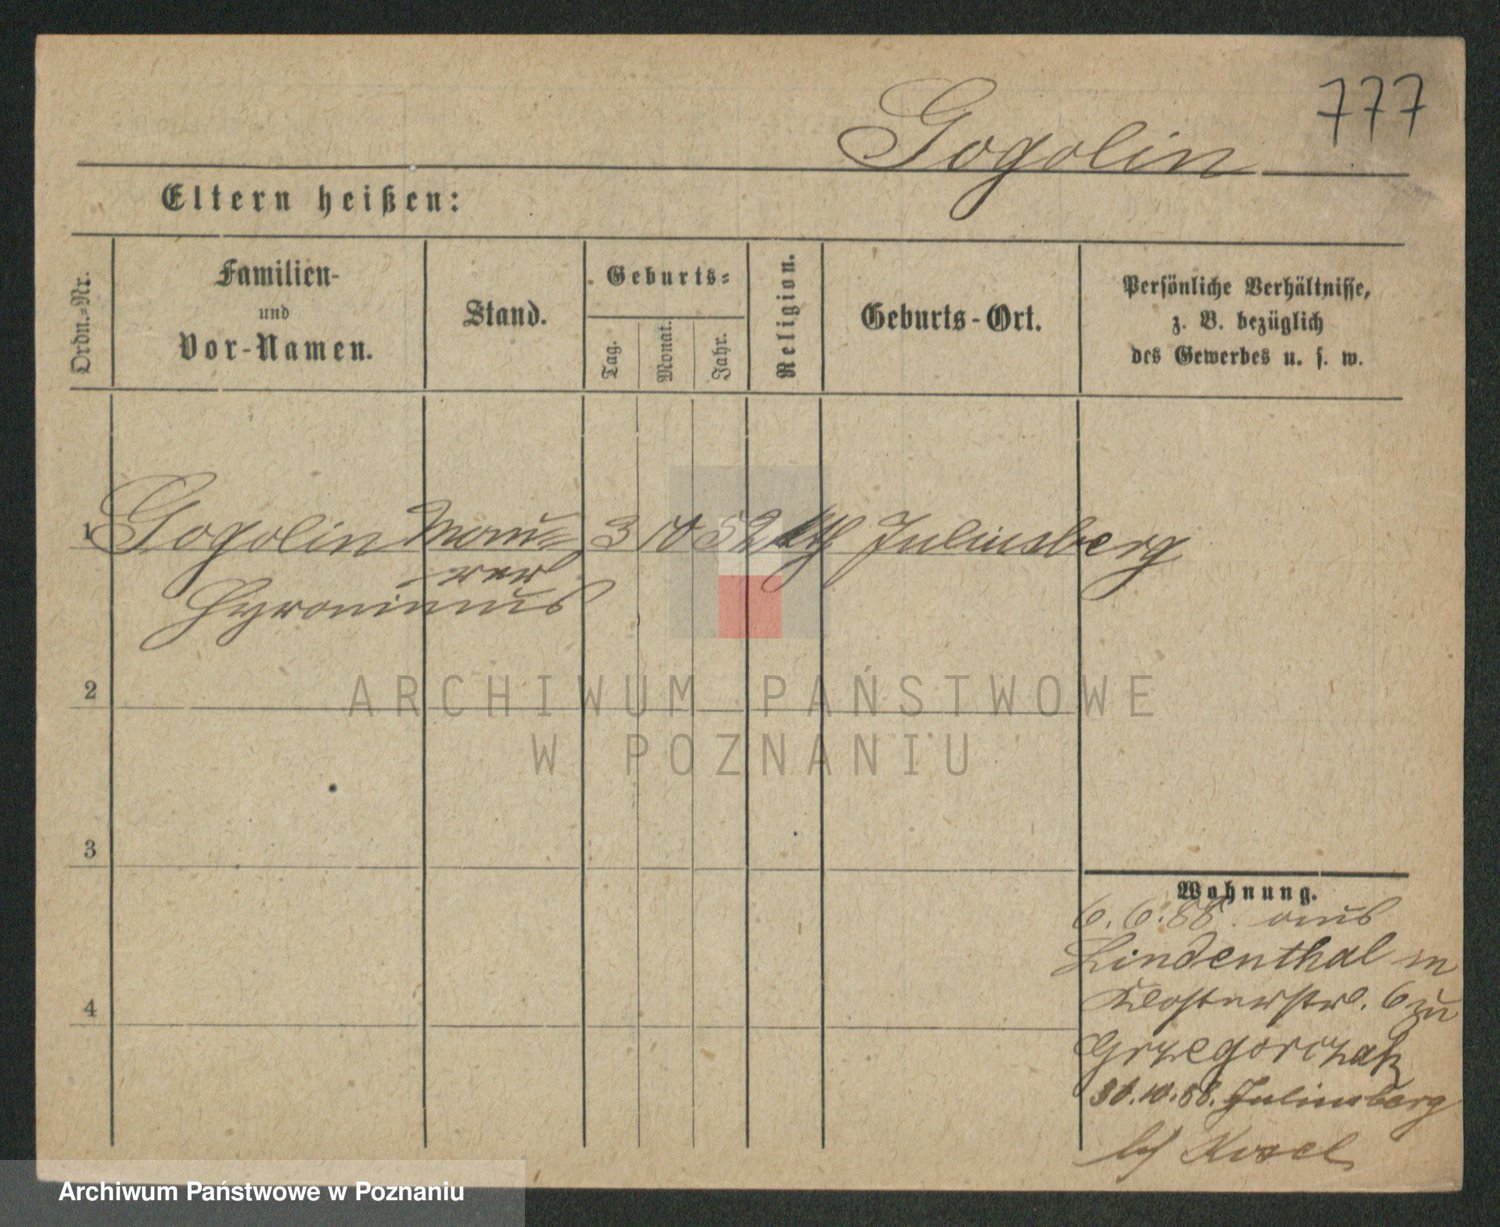 777
Gogolin
Eltern heißen:
Ordn.-Nr.
Familien-
und
Vor-Namen.
Stand.
Geburts-
Tag.
Monat.
Jahr.
Religion.
Geburts-Ort.
Persönliche Verhältnisse,
z. B. bezüglich
des Gewerbes u. s. w.
1 Gogolin Mau- 3 10 52 kth Juliusberg
rer
Hyronimus
2
ARCHIWUM PAŃSTWOWE
W POZNANIU
3
Wohnung.
6.6.88. aus
Lindenthal in
Klosterstr. 6 zu
Grzegorczak
30.10.88. Juliusberg
bei Kosel
4
Archiwum Państwowe w Poznaniu